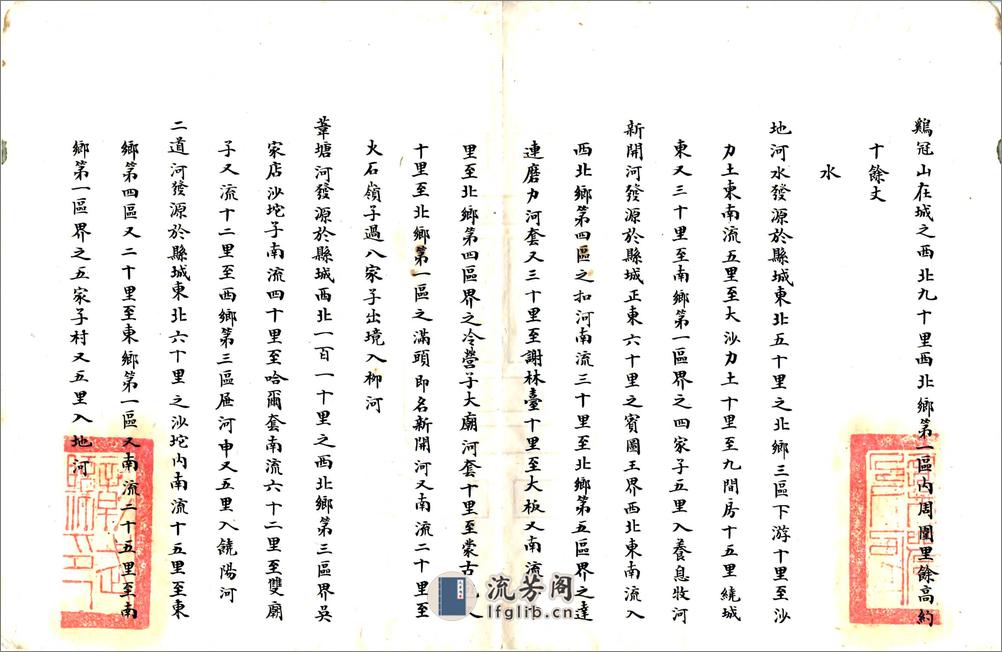 鷄冠山在城之西北九十里西北鄉第一區內周圍里餘高約
十餘丈
水
地河水發源於縣城東北五十里之北鄉三區下游十里至沙
力土東南流五里至大沙力土十里至九間房十五里繞城
東又三十里至南鄉第一區界之四家子五里入養息牧河
新開河發源於縣城正東六十里之賓圖王界西北東南流入
西北鄉第四區之扣河南流三十里至北鄉第五區界之達
連磨力河套又三十里至謝林臺十里至大板又南流
里至北鄉第四區界之冷營子大廟河套十里至蒙古
十里至北鄉第一區之滿頭即名新開河又南流二十里至
火石嶺子過八家子出境入柳河
葦塘河發源於縣城西北一百一十里之西北鄉第三區界吳
家店沙坨子南流四十里至哈爾套南流六十二里至雙廟
子又流十二里至西鄉第三區屜河申又五里入饒陽河
二道河發源於縣城東北六十里之沙坨內南流十五里至東
鄉第四區又二十里至東鄉第一區又南流二十五里至南
鄉第一區界之五家子村又五里入地河
流芳阁
lfglib.com